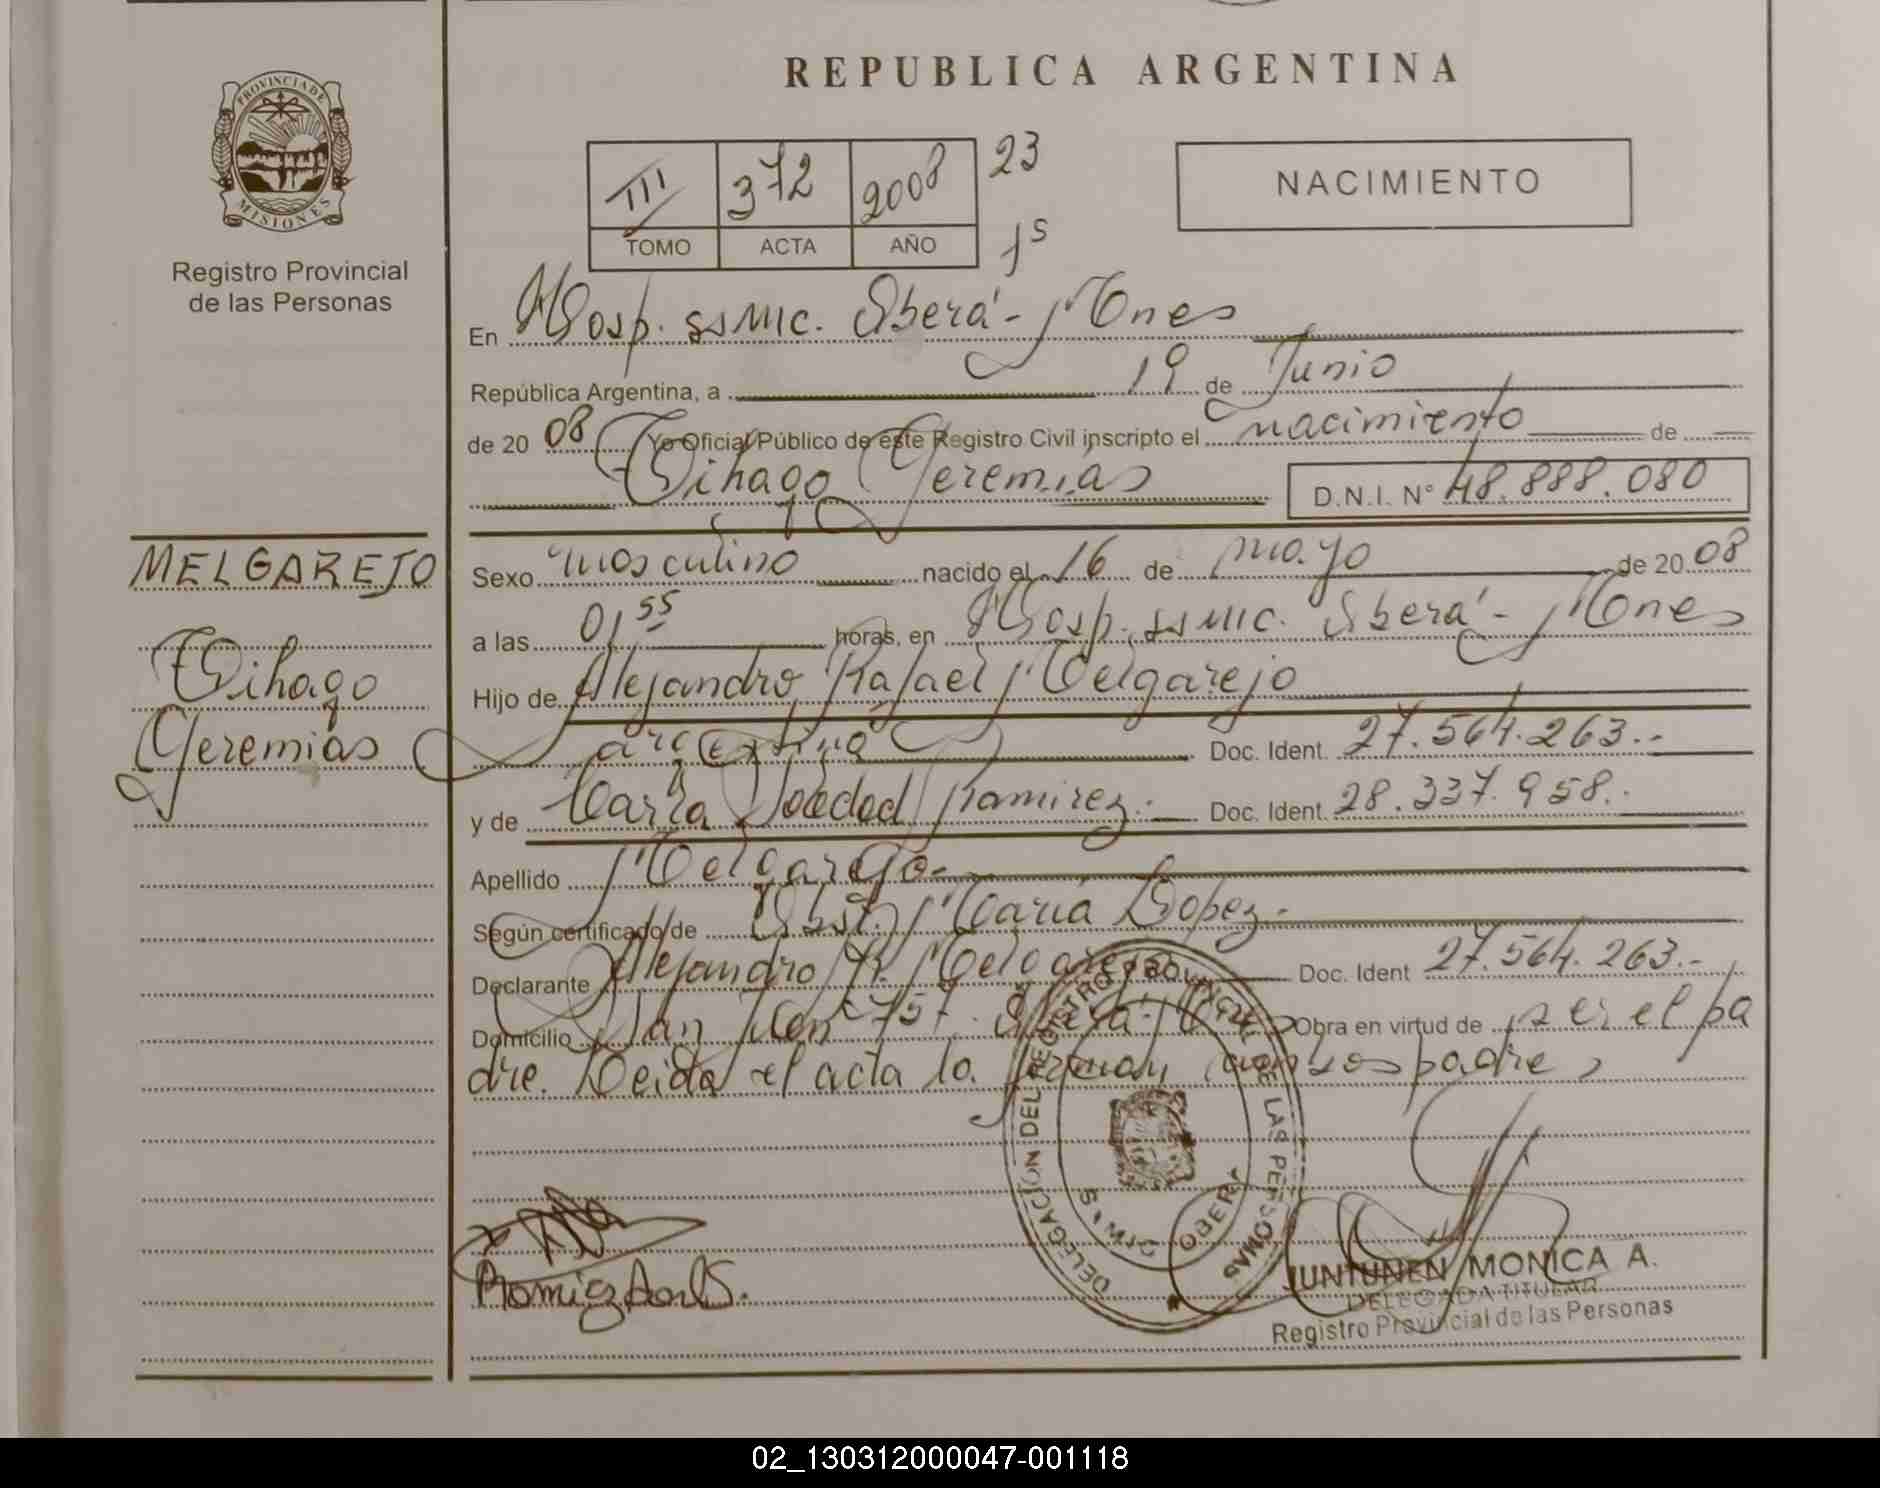 PROVINCIA DE
MISIONES
Registro Provincial
de las Personas
REPUBLICA ARGENTINA
III 372 2008 23
TOMO ACTA AÑO 1s
NACIMIENTO
En Hosp. ssMic. Oberá - Mnes
República Argentina, a 19 de Junio
de 20 08 Yo Oficial Público de este Registro Civil inscripto el nacimiento de
Tihago Jeremias D.N.I. N° 48.888.080
MELGAREJO
Tihago
Jeremias
Sexo masculino nacido el 16 de mayo de 20 08
a las 01 55 horas, en Hosp. ssMic. Oberá - Mnes
Hijo de Alejandro Rafael Melgarejo
argentina Doc. Ident. 27.564.263.-
y de Soledad Ramirez.- Doc. Ident. 28.337.958.-
Apellido Melgarejo.-
Según certificado de Obst. Maria Lopez.-
Declarante Alejandro R. Melgarejo Doc. Ident 27.564.263.-
Domicilio 757 Oberá Mnes Obra en virtud de ser el pa
dre. Leida el acta la firman ambos padres
DELEGACION DEL REGISTRO PROVINCIAL DE LAS PERSONAS
OBERA
MNS
JUNTUNEN MONICA A.
DELEGADA TITULAR
Registro Provincial de las Personas
02_130312000047-001118